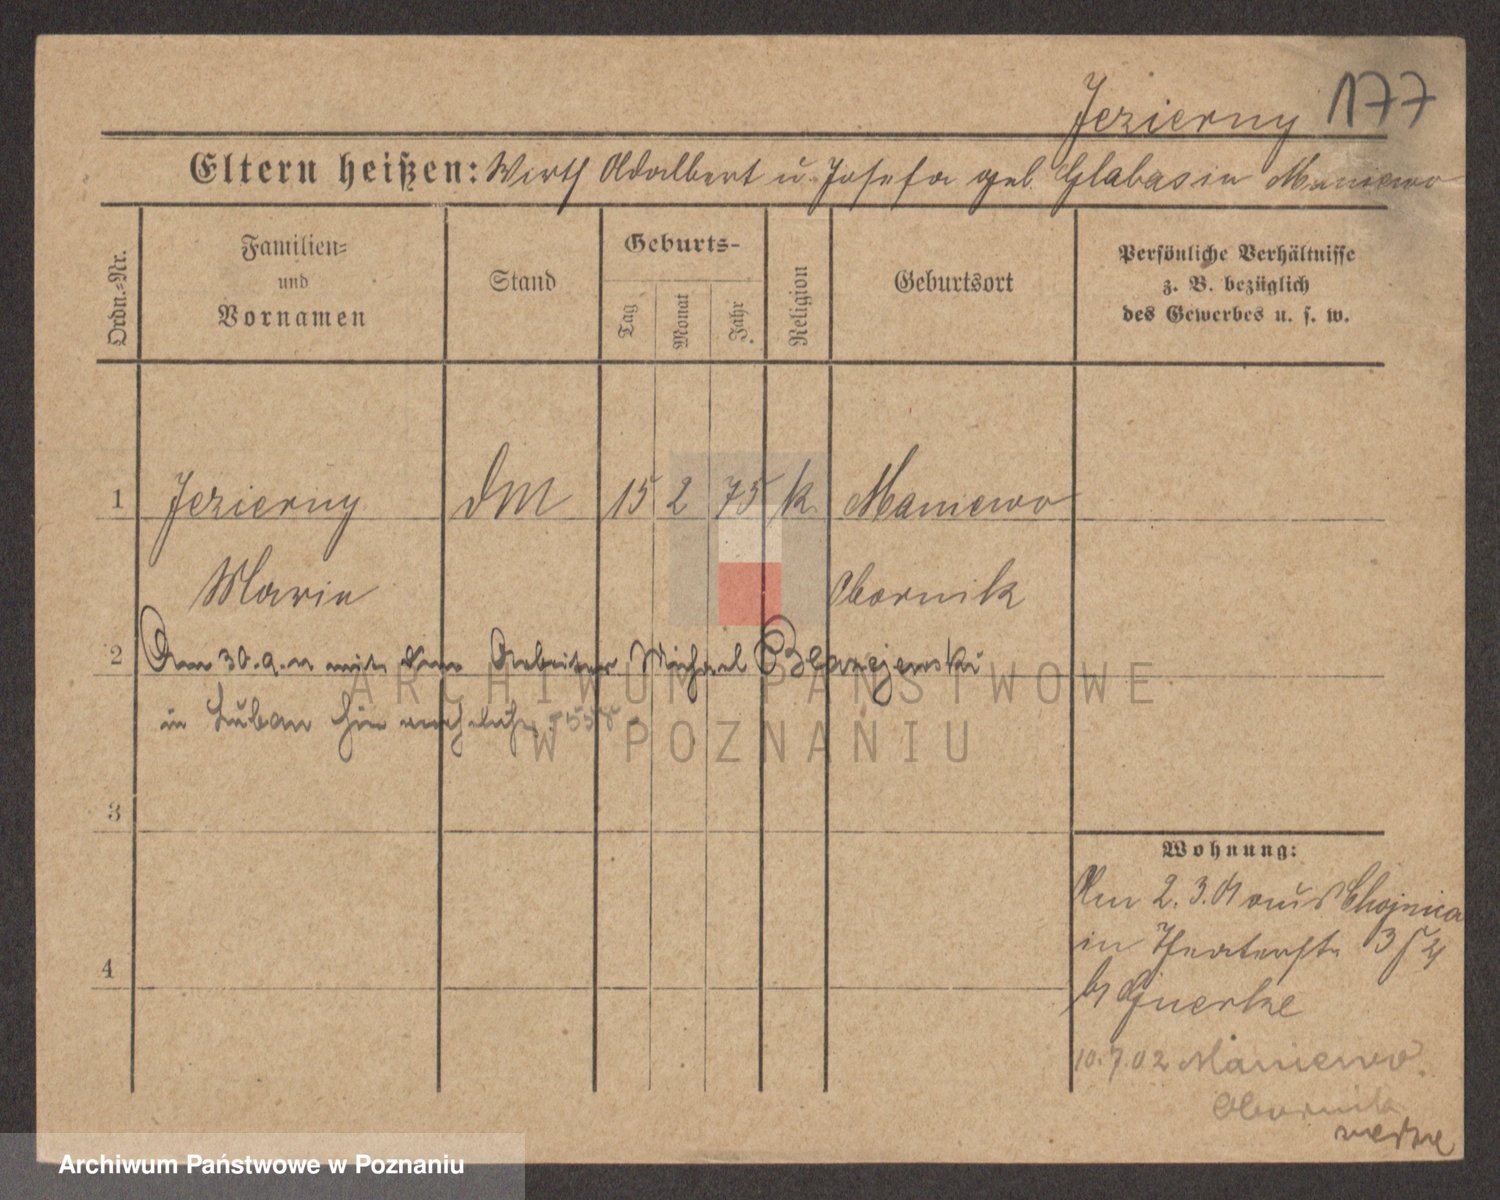 Jezierny 177
Eltern heißen: Wirth Adalbert u. Josefa geb. Glabasin Maniewo
Ordn.-Nr.
Familien-
und
Vornamen
Stand
Geburts-
Tag
Monat
Jahr
Religion
Geburtsort
Persönliche Verhältnisse
z. B. bezüglich
des Gewerbes u. s. w.
1 Jezierny DM 15 2 75 k Maniewo
Marie Obornik
2 Am 30.9. mit dem Arbeiter Michael Blazejewski
in Luban
ARCHIWUM PAŃSTWOWE
W POZNANIU
3
Wohnung:
Am 2.3.01 aus Chojnica
in Theaterstr. 3
4
b/
10.7.02 Maniewo
Obornik
Archiwum Państwowe w Poznaniu